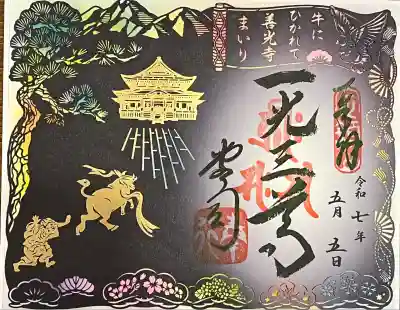 牛に
ひかれて
善光寺
まいり
奉拝
令和七年
五月五日
一光三尊